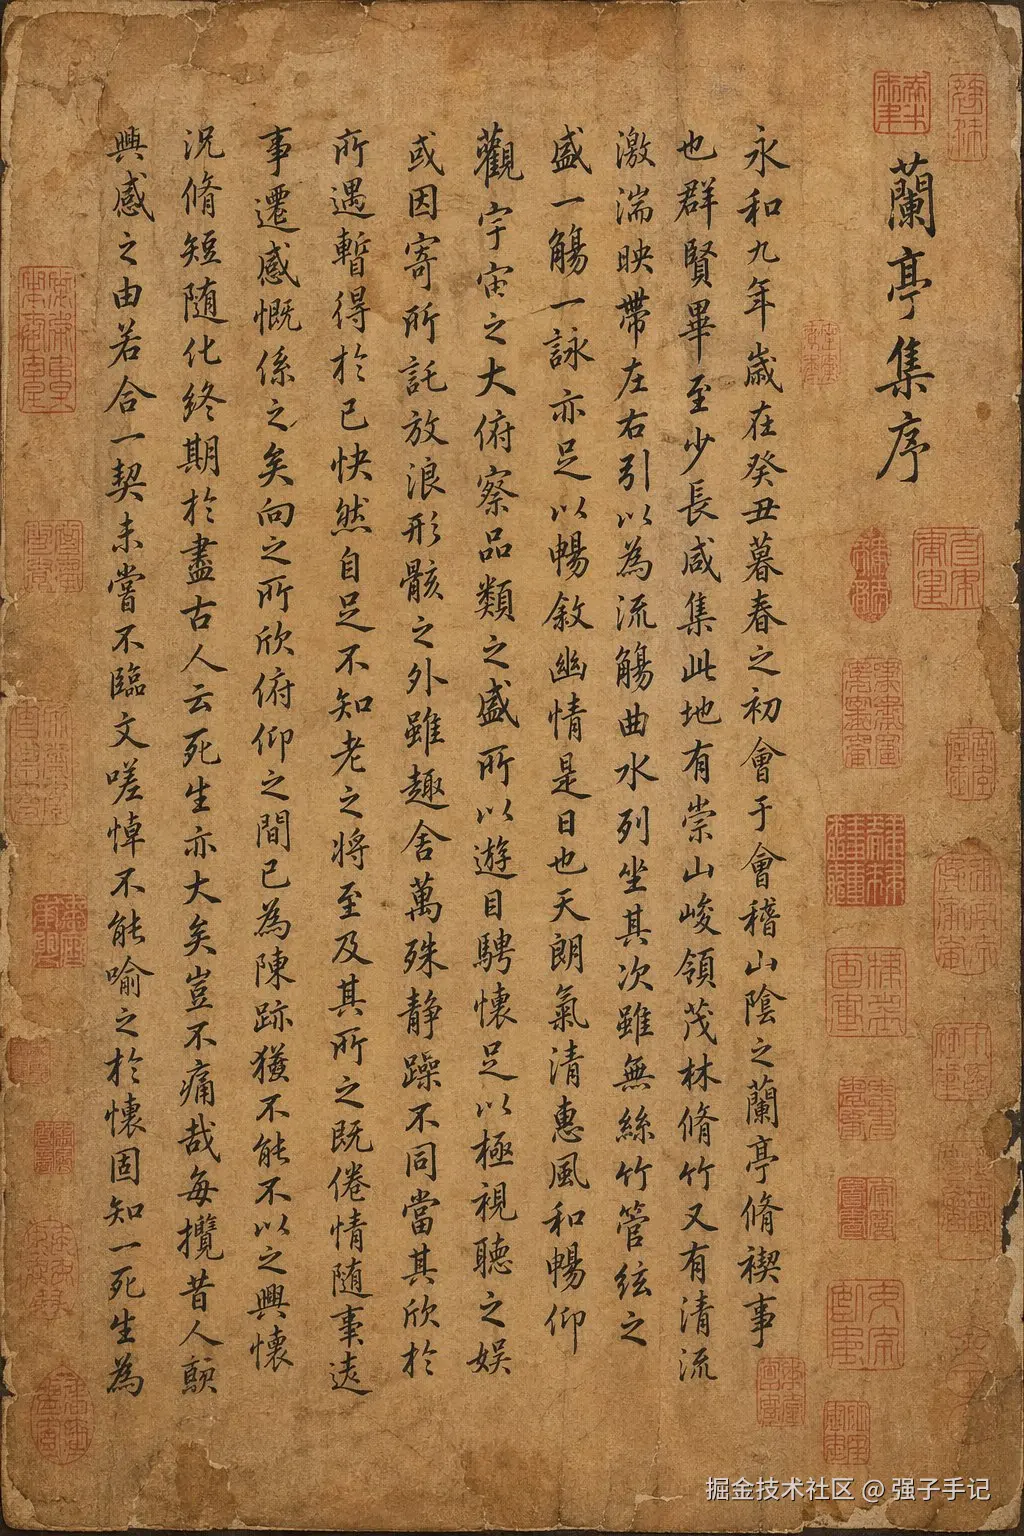 蘭亭集序
永和九年歲在癸丑暮春之初會于會稽山陰之蘭亭脩禊事
也群賢畢至少長咸集此地有崇山峻領茂林脩竹又有清流
激湍映帶左右引以為流觴曲水列坐其次雖無絲竹管絃之
盛一觴一詠亦足以暢敘幽情是日也天朗氣清惠風和暢仰
觀宇宙之大俯察品類之盛所以遊目騁懷足以極視聽之娛
或因寄所託放浪形骸之外雖趣舍萬殊静躁不同當其欣於
所遇暫得於己快然自足不知老之将至及其所之既倦情随事
事遷感慨係之矣向之所欣俯仰之間已為陳跡猶不能不以之興懷
況脩短随化終期於盡古人云死生亦大矣豈不痛哉每攬昔人
興感之由若合一契未嘗不臨文嗟悼不能喻之於懷固知一死生為
掘金技术社区 @ 强子手记